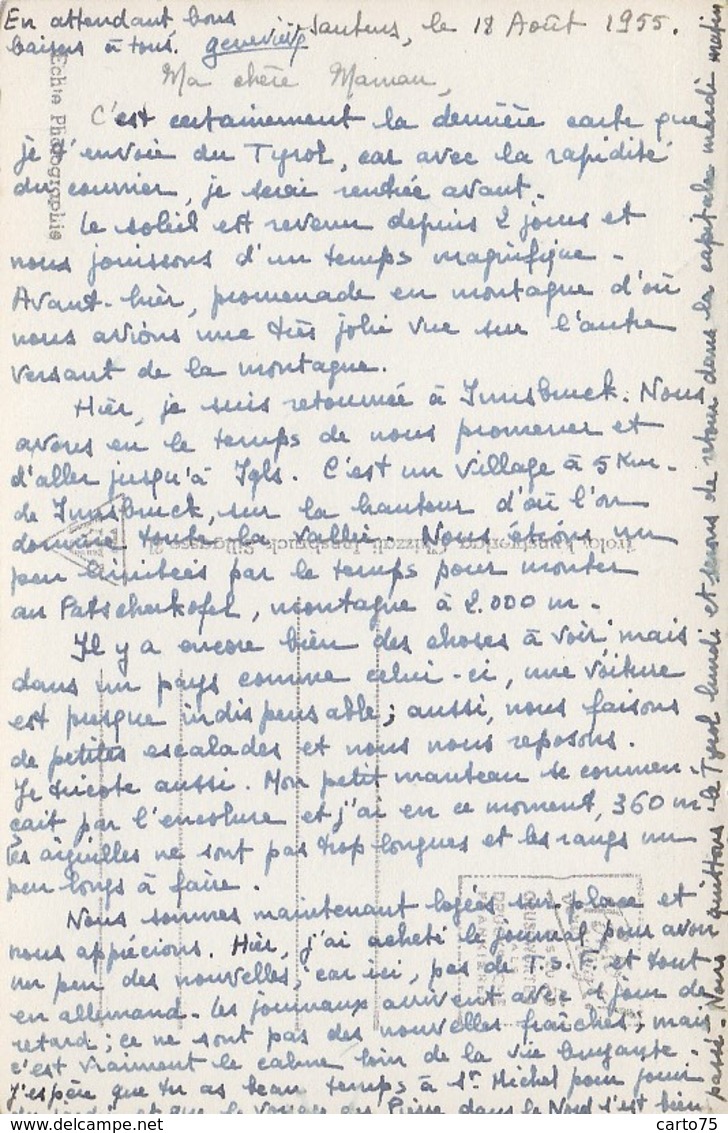 En attendant, bons
baisers à tous. Geneviève
Sautens, le 18 Août 1955.
Ma chère Maman,
C'est certainement la dernière carte que
je t'envoie du Tyrol, car avec la rapidité
du courrier, je serai rentrée avant.
Le soleil est revenu depuis 2 jours et
nous jouissons d'un temps magnifique.
Avant-hier, promenade en montagne d'où
nous avions une très jolie vue sur l'autre
versant de la montagne.
Hier, je suis retournée à Innsbruck. Nous
avons eu le temps de nous promener et
d'aller jusqu'à Igls. C'est un village à 5 km.
de Innsbruck, sur la hauteur d'où l'on
domine toute la vallée. Nous étions un
peu limitées par le temps pour monter
au Patscherkofel, montagne à 2.000 m.
Il y a encore bien des choses à voir mais
dans un pays comme celui-ci, une voiture
est presque indispensable ; aussi, nous faisons
de petites escalades et nous nous reposons.
Je tricote aussi. Mon petit manteau se commen-
çait par l'encolure et j'ai en ce moment, 360 m.
Les aiguilles ne sont pas trop longues et les rangs un
peu longs à faire.
Nous sommes maintenant logées sur place et
nous apprécions. Hier, j'ai acheté le journal pour avoir
un peu des nouvelles, car ici, pas de T.S.F. et tout
en allemand. Les journaux arrivent avec 1 jour de
retard ; ce ne sont pas des nouvelles fraîches, mais
c'est vraiment le calme loin de la vie bruyante.
J'espère que tu as beau temps à St Michel pour jouir
et que le voyage dans le Nord s'est bien
passé. Nous quittons le Tyrol lundi et serons de retour dans la capitale mardi matin
Echte Photographie
carto75